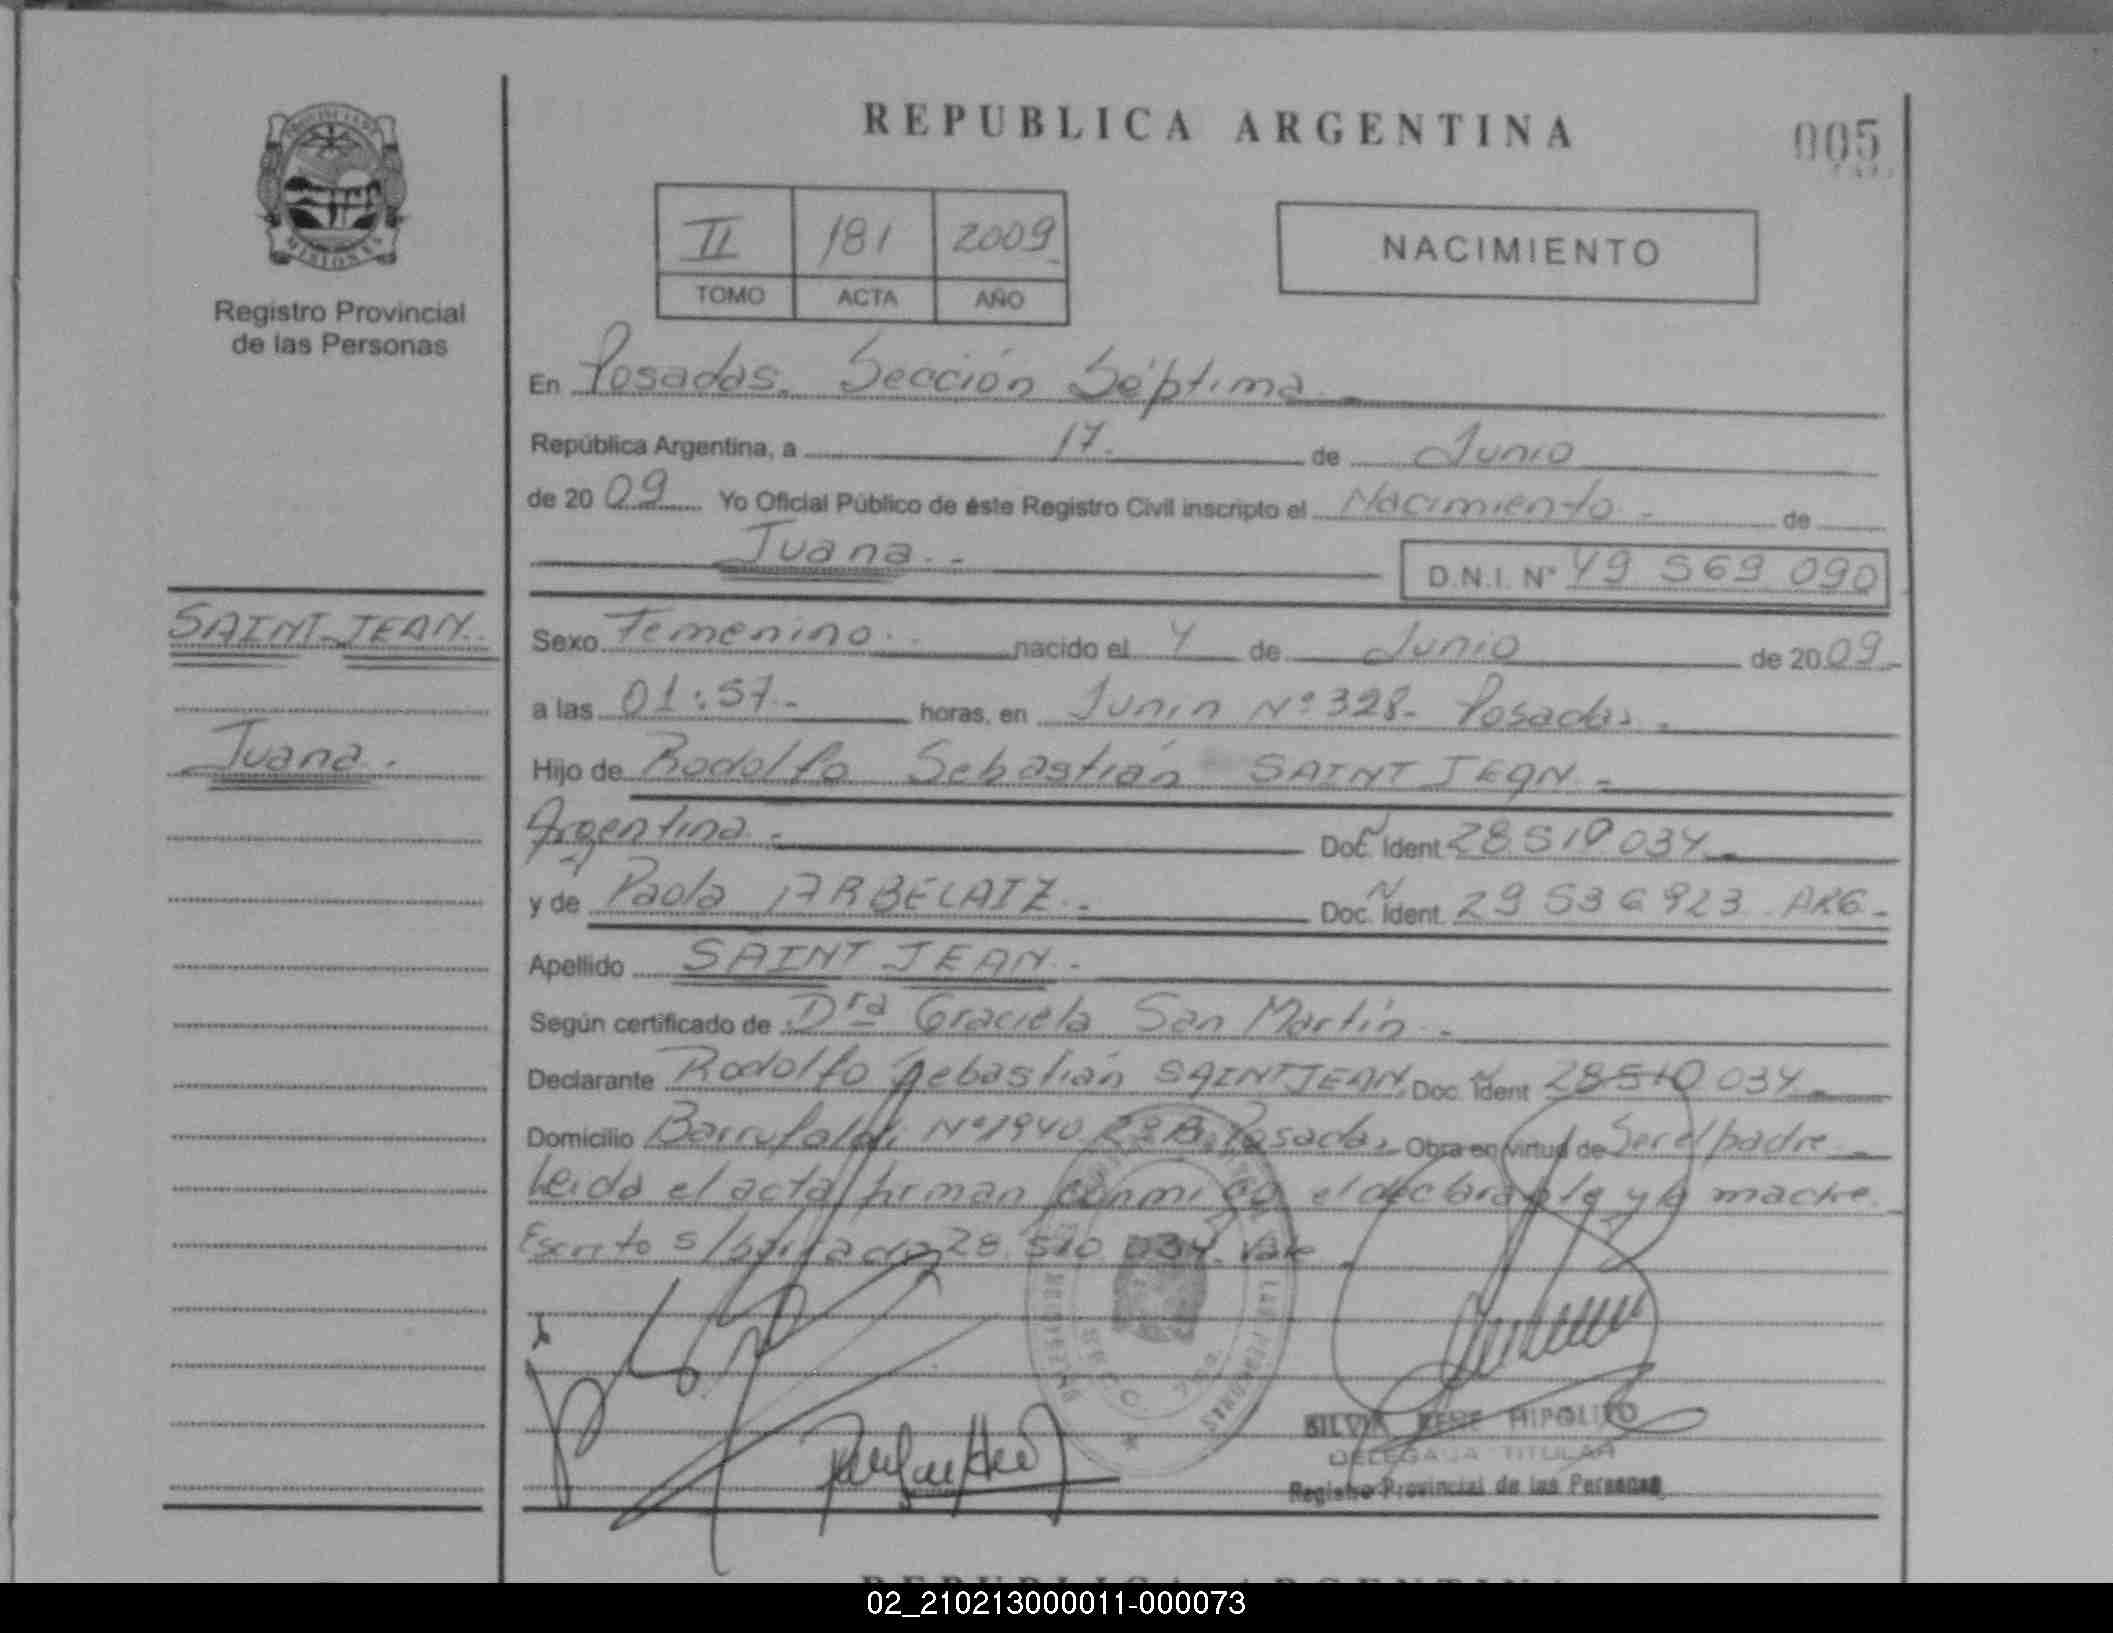 REPUBLICA ARGENTINA
005
PROVINCIA DE
MISIONES
Registro Provincial
de las Personas
II 181 2009
TOMO ACTA AÑO
NACIMIENTO
En Posadas. Sección Séptima
República Argentina, a 17 de Junio
de 2009 Yo Oficial Público de éste Registro Civil inscripto el Nacimiento - de
Juana.-
D.N.I. N° 49 569 090
SAINT JEAN.
Juana.
Sexo Femenino.- nacido el 4 de Junio de 2009-
a las 01:57.- horas, en Junin N° 328- Posadas.
Hijo de Rodolfo Sebastián SAINT JEAN.-
Argentina.- Doc. Ident 28 510 034-
y de Paola ARBELAIZ.- Doc. Ident. 29 536 923 ARG.-
Apellido SAINT JEAN.-
Según certificado de Dra Graciela San Martín.-
Declarante Rodolfo Sebastián SAINT JEAN. Doc. Ident 28510 034-
Domicilio N° 1940 Posadas Obra en virtud de Ser el padre-
Leida el acta firman conmigo el declarante y la madre.
Escrito s/ 28.510.034. Vale.
SILVIA HIPOLITO
DELEGADA TITULAR
Registro Provincial de las Personas
REPUBLICA ARGENTINA
02_210213000011-000073